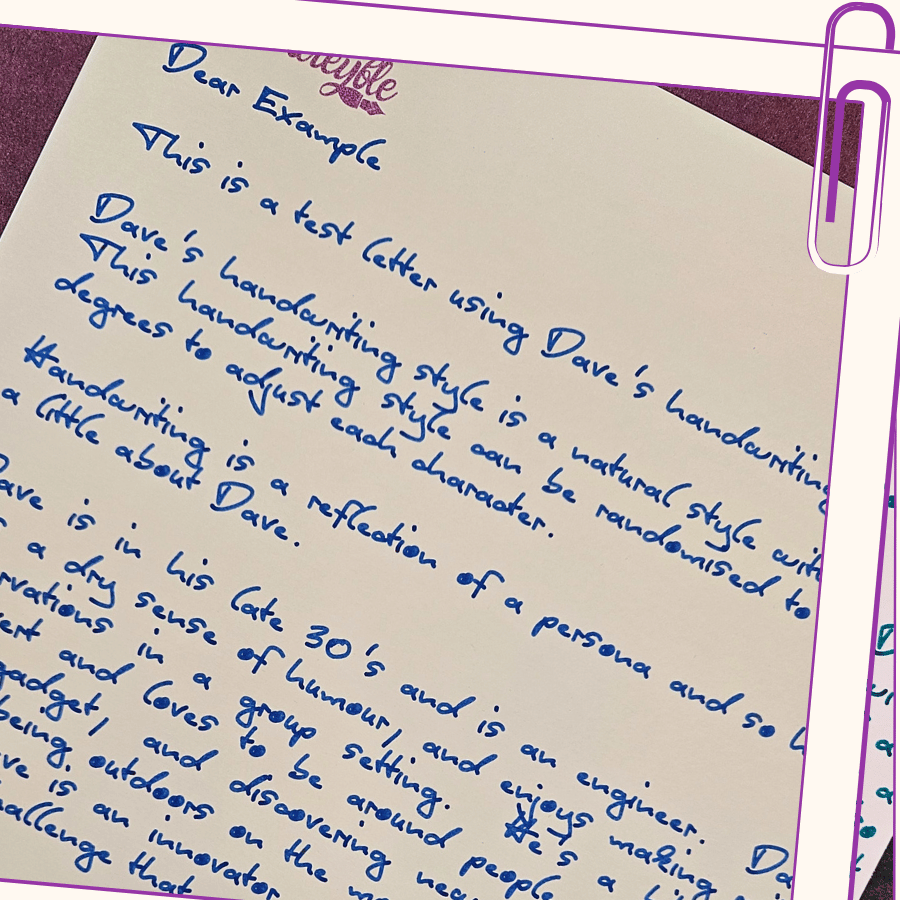 Dear Example
This is a test letter using Dave's handwriting
Dave's handwriting style is a natural style with
This handwriting style can be randomised to
degrees to adjust each character.
Handwriting is a reflection of a persona and so
a little about Dave.
Dave is in his late 30's and is an engineer. Da
a dry sense of humour, and enjoys making
rvations in a group setting. He's a
ert and loves to be around people
gadget, and discovering
being outdoors on the
ve is an innovator
hallenge that